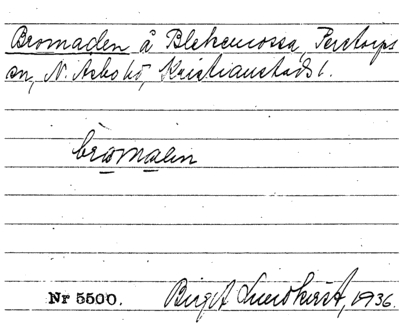 Bromaden å Blekemossa, Perstorps
sn, N. Åsbo hd, Kristianstads l.
bromaden
Nr 5500. Birgit Lundkvist, 1936.